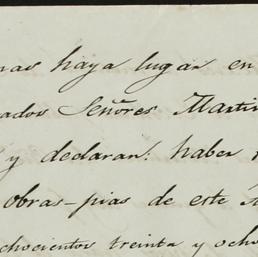 mas haya lugar en
ados Señores Martin
y declaran: haber
obras-pias de este
chocientos treinta y ocho